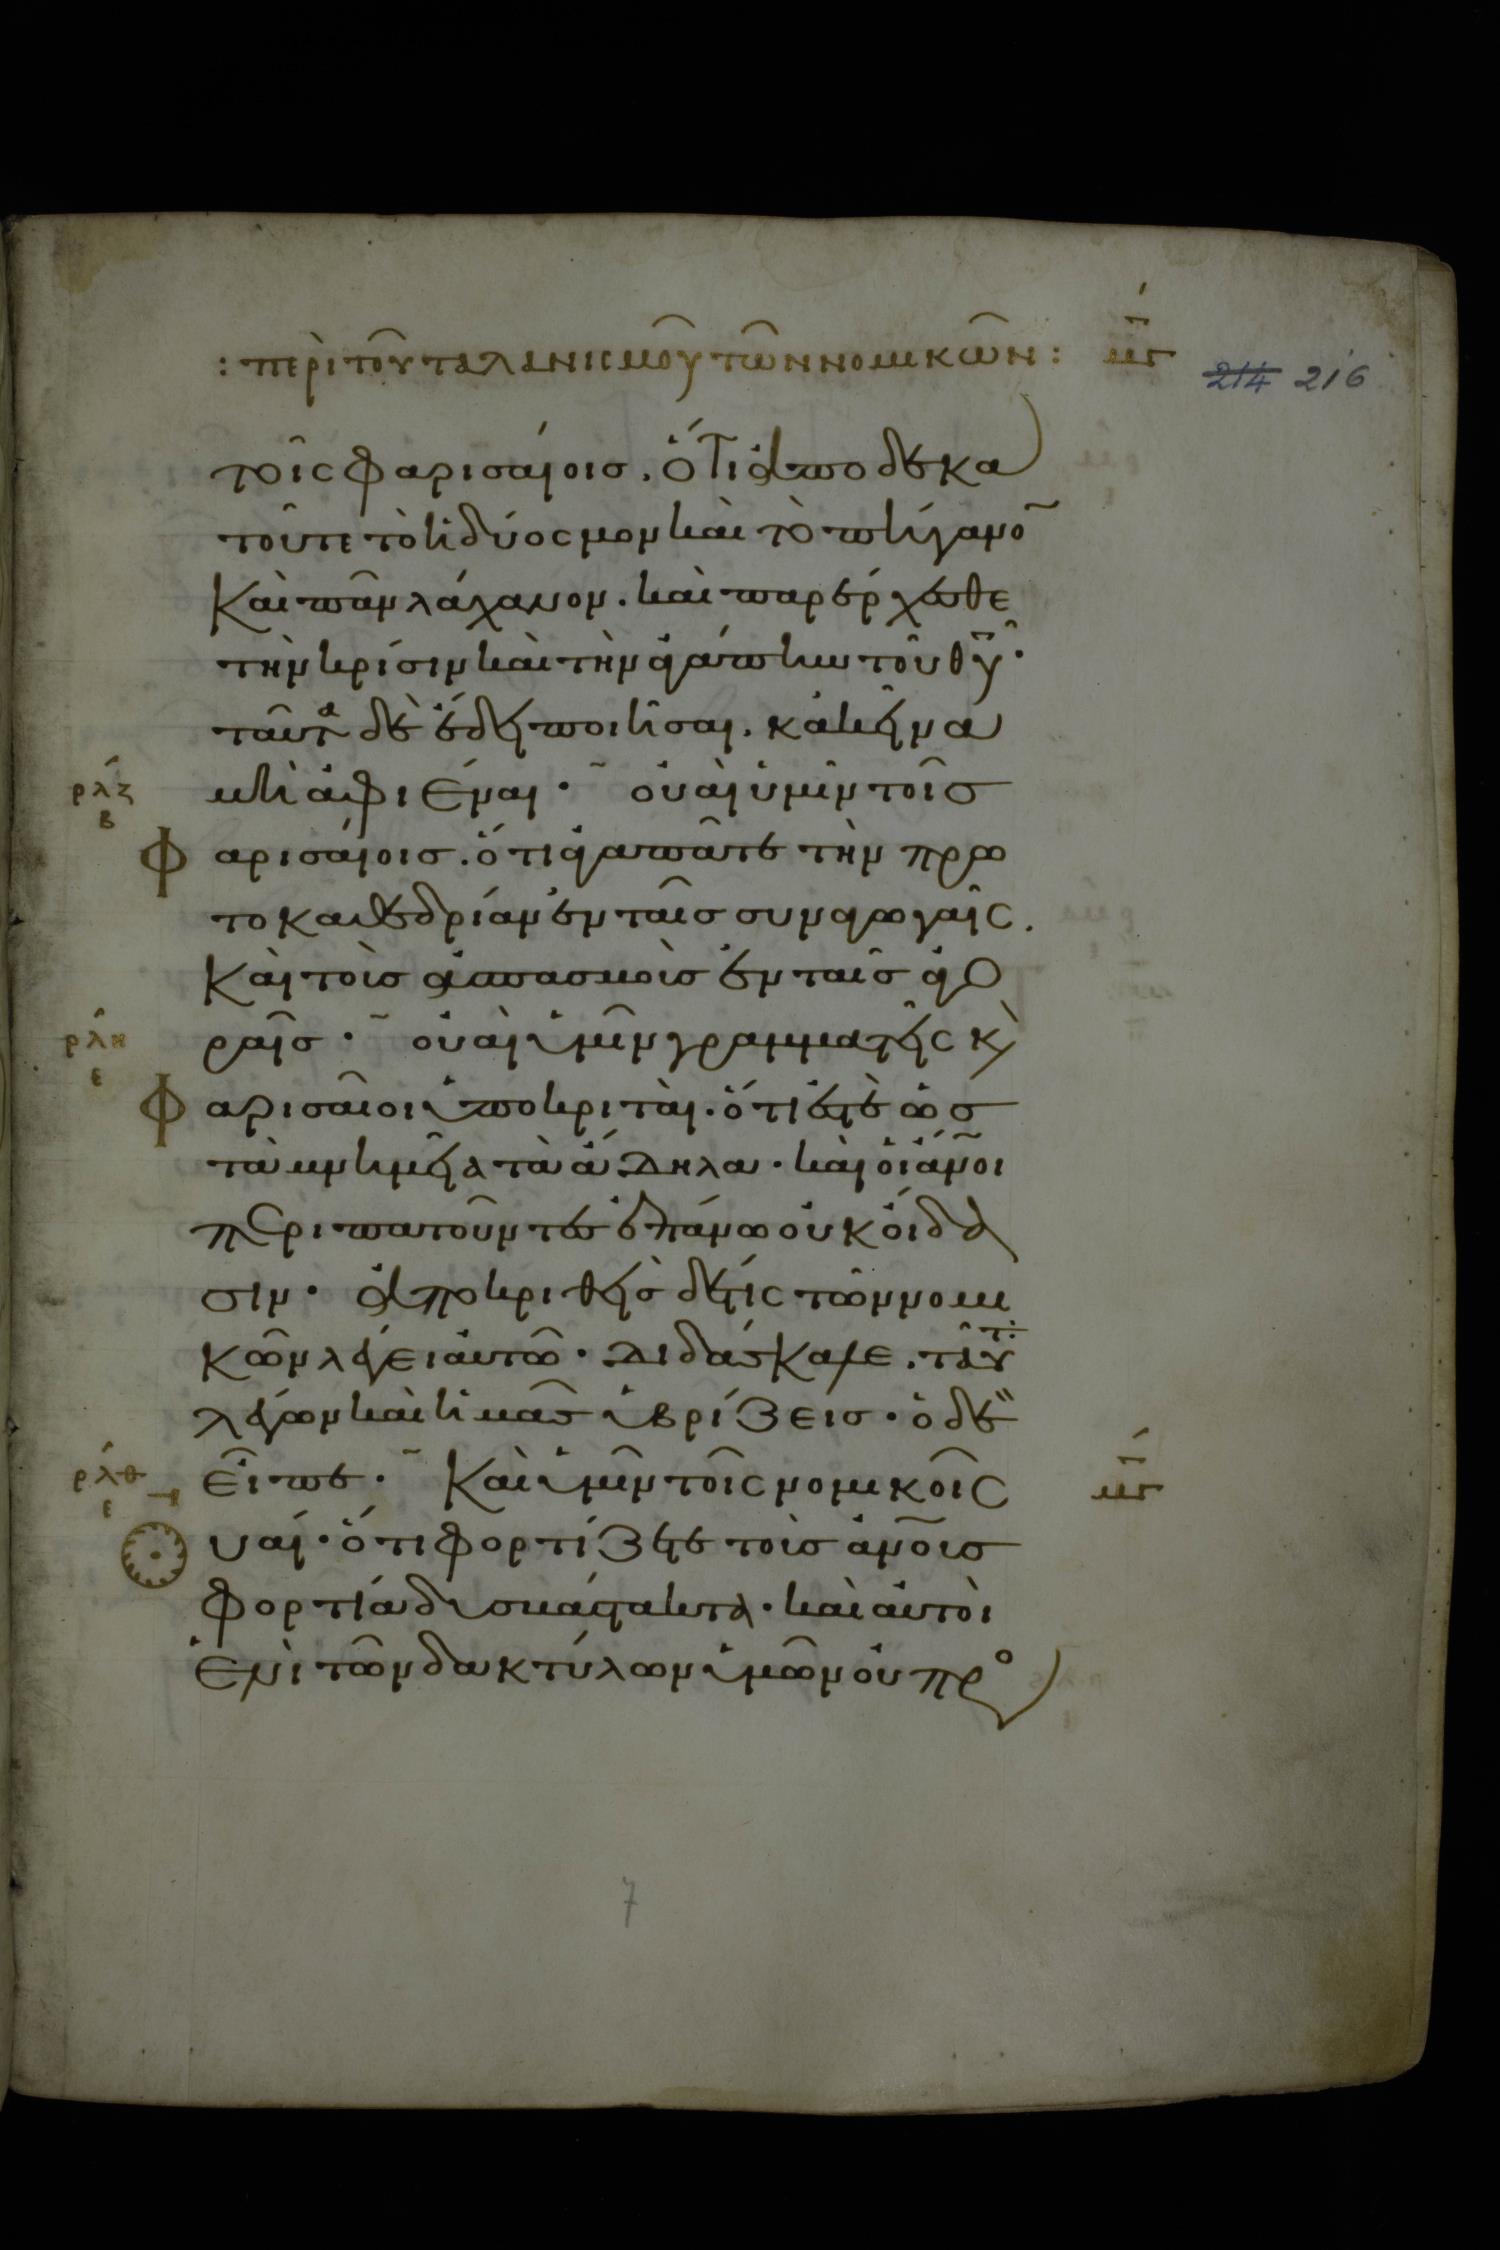 : περὶ τοῦ ταλανισμοῦ τῶν νομικῶν : μγ
214 216
τοῖς φαρισαίοις. ὅτι ἀποδεκα
τοῦτε τὸ ἡδύοσμον καὶ τὸ πήγανο̄
καὶ πᾶν λάχανον. καὶ παρέρχεσθε
τὴν κρίσιν καὶ τὴν ἀγάπην τοῦ θ̅υ̅·
ταῦτα δὲ ἔδει ποιῆσαι. κακεῖνα
ρλζ μὴ ἀφιέναι· οὐαὶ ὑμῖν τοῖς
β
φαρισαίοις. ὅτι ἀγαπᾶτε τὴν πρω
τοκαθεδρίαν ἐν ταῖς συναγωγαῖς.
καὶ τοὺς ἀσπασμοὺς ἐν ταῖς ἀγο
ρλη ραῖς· οὐαὶ ὑμῖν γραμματεῖς κὶ
ε
φαρισαῖοι ὑποκριταί. ὅτι ἐστὲ ὡς
τὰ μνημεῖα τὰ ἄδηλα· καὶ οἱ ἄν̅οι
περιπατοῦντες ἐπάνω οὐκ οἴδα
σιν· ἀποκριθεὶς δέ τις τῶν νομι
κῶν λέγει αὐτῶ· διδάσκαλε. ταῦτ
λέγων καὶ ἡμᾶς ὑβρίζεις· ὁ δὲ
ρλθ εἶπε· καὶ ὑμῖν τοῖς νομικοῖς μγ
ε
οὐαί· ὅτι φορτίζετε τοὺς ἀν̅ους
φορτία δυσβάστακτα· καὶ αὐτοὶ
ἑνὶ τῶν δακτύλων ὑμῶν οὐ προ
7